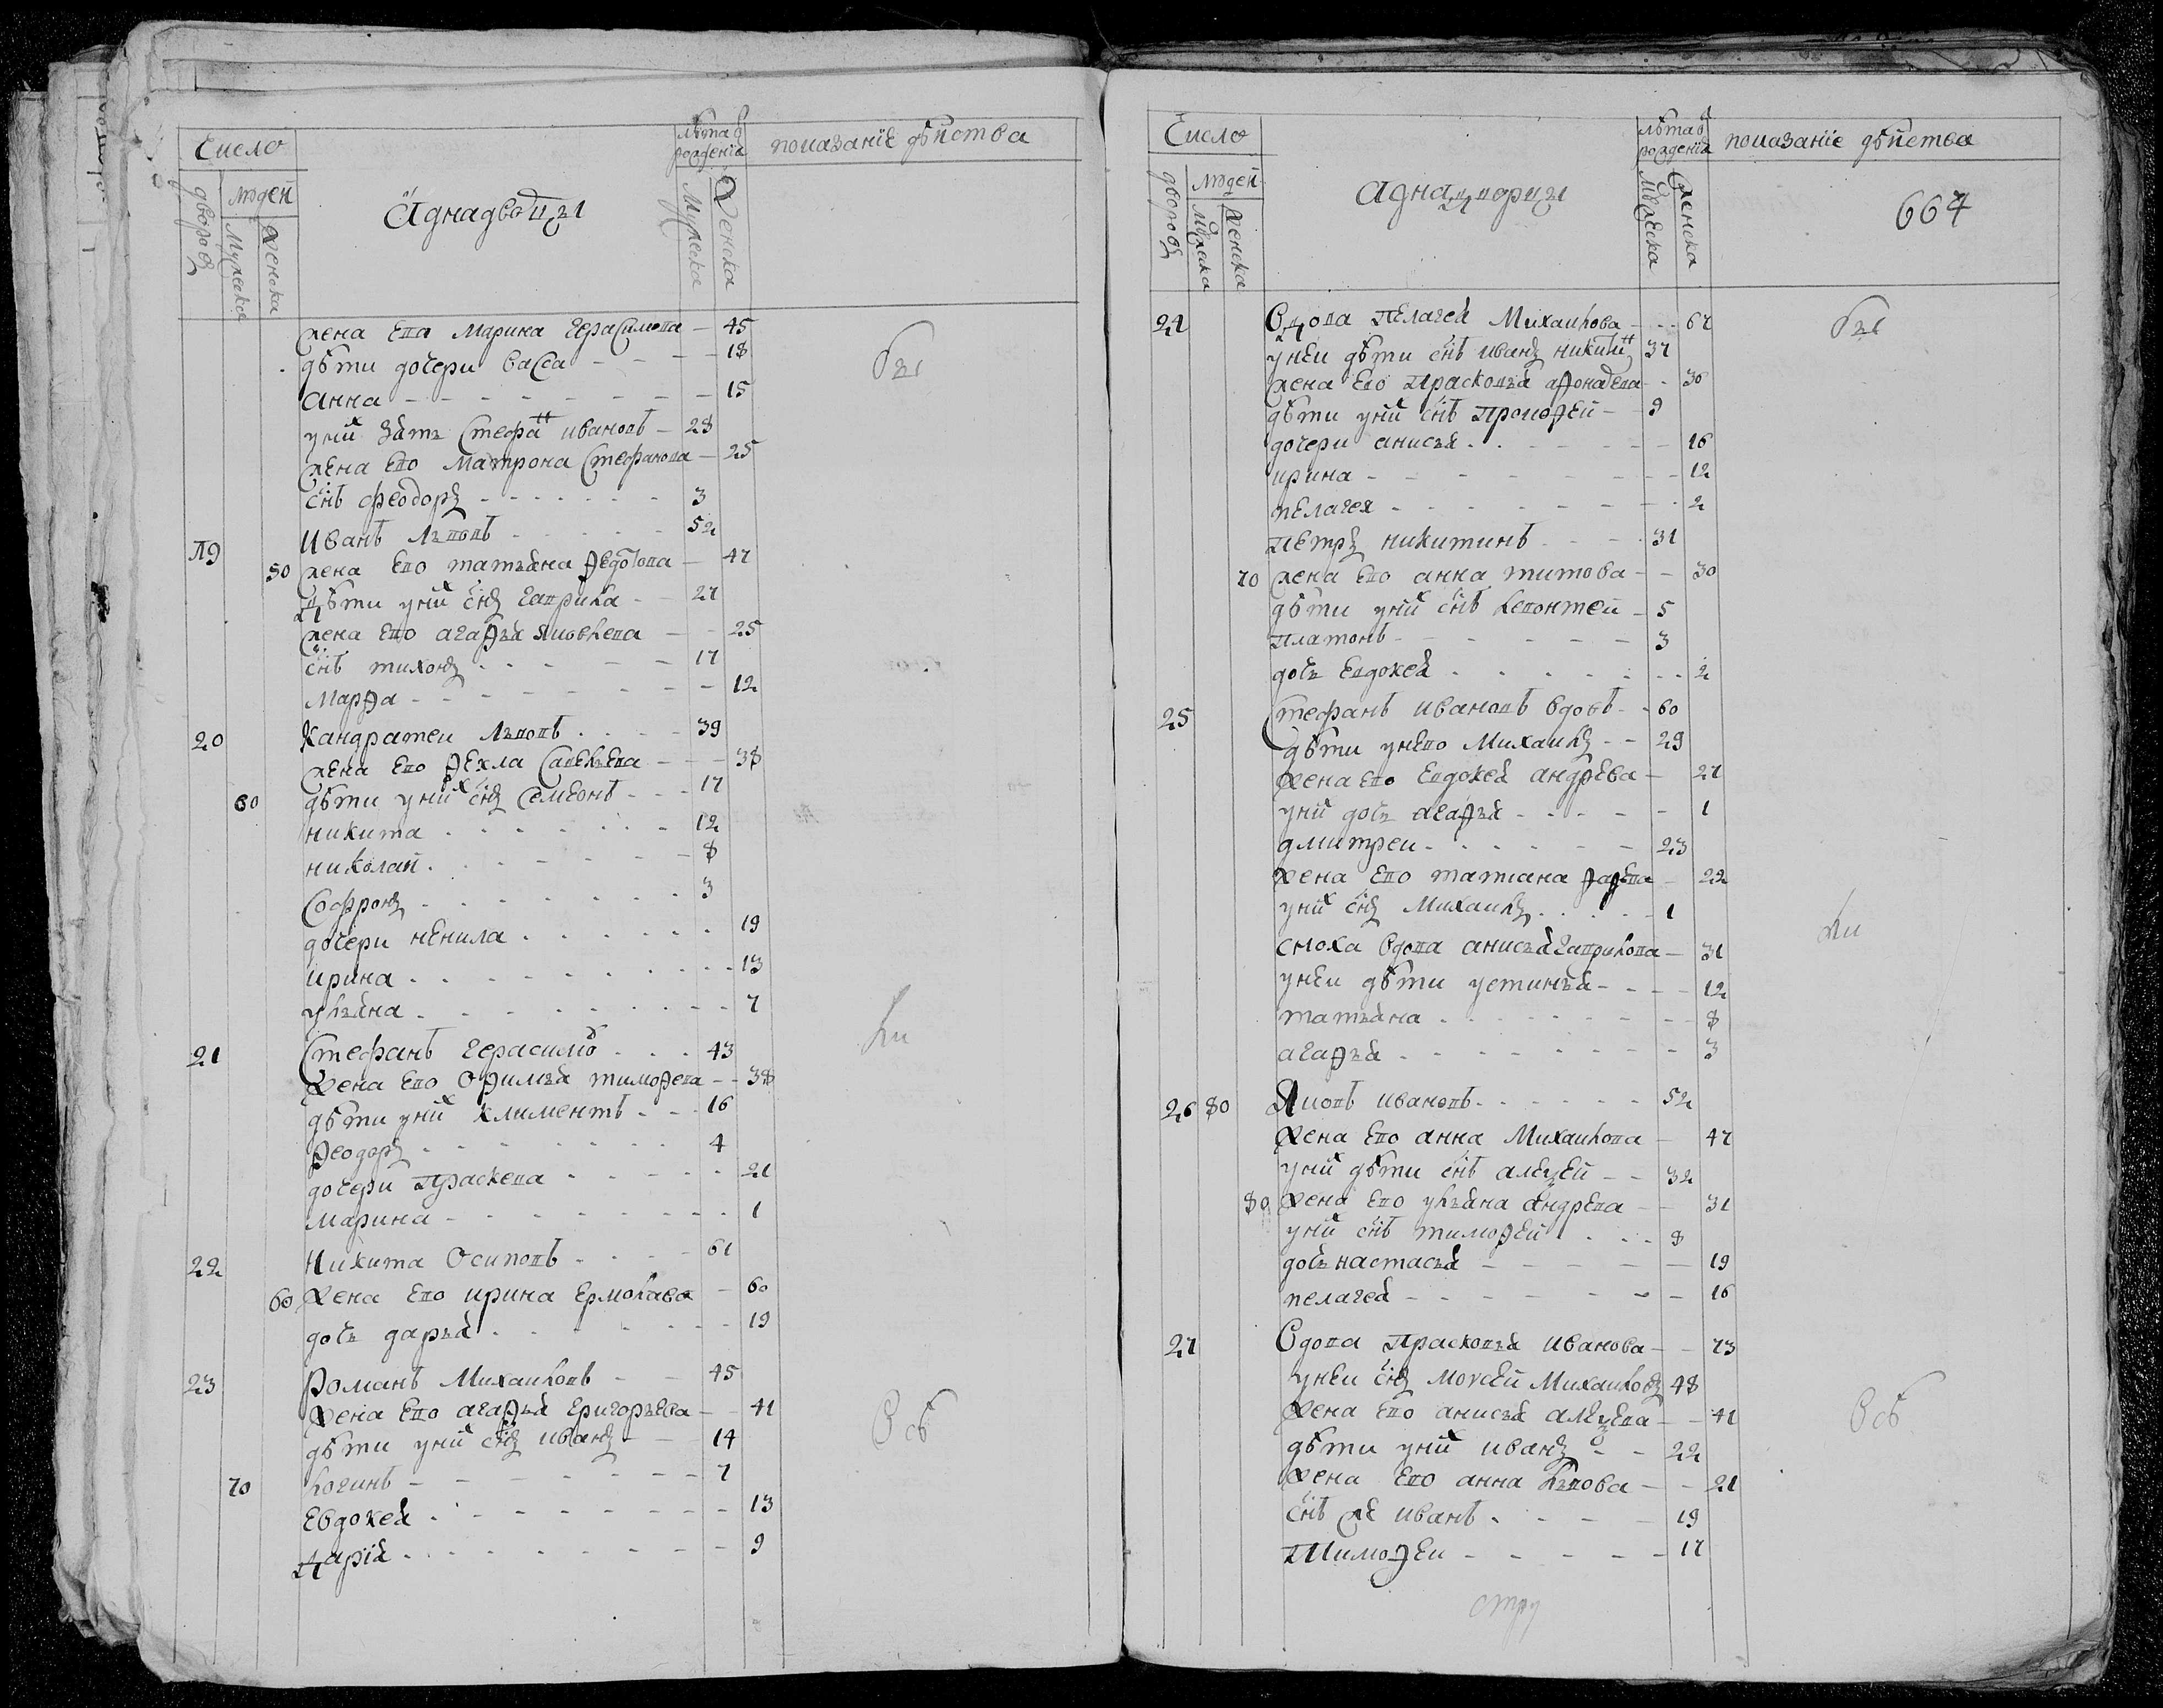 Число
людей
дворовъ
Мужеска
Женска
Аднадворцы
лѣта ѿ рождениа
Мужеска
Женска
показанїе дѣйства
жена Ево Марина Герасимова — 45
дѣти дочери васса - - - - 18
Бы
анна - - - - - - - - 15
уних зать Стефан ивановъ — 28
жена Ево Матрона Стефанова — 25
снъ феодоръ - - - - - - - 3
19
Иванъ Львовъ - - - - - 52
50 жена Ево татьяна Ѳедотова — 47
дѣти уних снъ гаврила - - 27
жена Ево агаѳья Яковлева - - 25
снъ тихонъ - - - - - - 17
марѳа - - - - - - - - 12
20
Кандратеи Львовъ - - - - 39
жена Ево Ѳекла Савельева - - - 38
60 дѣти уних снъ Семеонъ - - - 17
никита - - - - - - - 12
николай - - - - - - - 8
Софронъ - - - - - - - - 3
дочери ненила - - - - - - 19
ирина - - - - - - - - - 13
ульяна - - - - - - - - - 7
ли
21
Стефанъ герасимо - - - 43
жена Ево Офимья тимоѳева - - 38
дѣти уних климентъ - - - 16
Ѳеодоръ - - - - - - - - 4
дочери Праскева - - - - - - 21
марина - - - - - - - - - 1
22
Никита Осиповъ - - - - 61
60 жена Ево ирина Ермолаева - 60
дочь дарья - - - - - - - 19
23
Романъ Михаиловъ - - 45
жена Ево агаѳья Григорьева - - 41
Всѣ
дѣти уних снъ иванъ - - 14
70 логинъ - - - - - - - - 7
Евдокея - - - - - - - - 13
дарїя - - - - - - - - - 9
Число
людей
дворовъ
Мужеска
Женска
аднадворцы
лѣта ѿ рождениа
Мужеска
Женска
показанїе дѣйства
667
24
Вдова Пелагея Михаилова - - - 67
Бы
унеи дѣти снъ иванъ никитин 37
жена Ево Прасковья аѳонасева - - 36
дѣти уних снъ Прокоѳей - - 9
дочери анисья - - - - - - - 16
ирина - - - - - - - - - 12
пелагея - - - - - - - - - 2
Петръ никитинъ - - - - 31
70 жена Ево анна титова - - 30
дѣти уних снъ Левонтей - 5
Платонъ - - - - - - - 3
дочь Евдокея - - - - - - - 2
25
Стефанъ ивановъ вдовъ - - 60
дѣти унево Михаилъ - - 29
жена Ево Евдокея андрѣева - 27
уних дочь агаѳья - - - - - 1
дмитреи - - - - - - 23
жена Ево татиана - 22
уних снъ Михаилъ - - - - - 1
сноха вдова анисья гаврилова - 31
ли
унеи дѣти устинья - - - - 12
татьяна - - - - - - - - 8
агаѳья - - - - - - - - 3
26 80
Яковъ ивановъ - - - - - - 52
жена Ево анна Михаилова - 47
уних дѣти снъ алеѯей - - 32
80 жена Ево ульяна андрева - - 31
уних снъ тимоѳей - - - - 8
дочь настасья - - - - - - 19
пелагея - - - - - - - 16
27
Вдова Прасковья иванова - - 73
унеи снъ моисей Михаиловъ 48
жена Ево анисья алеѯева - - 41
Всѣ
дѣти уних иванъ - - 22
жена Ево анна Львова - - 21
снъ же иванъ - - - - 19
Тимоѳеи - - - - - - 17